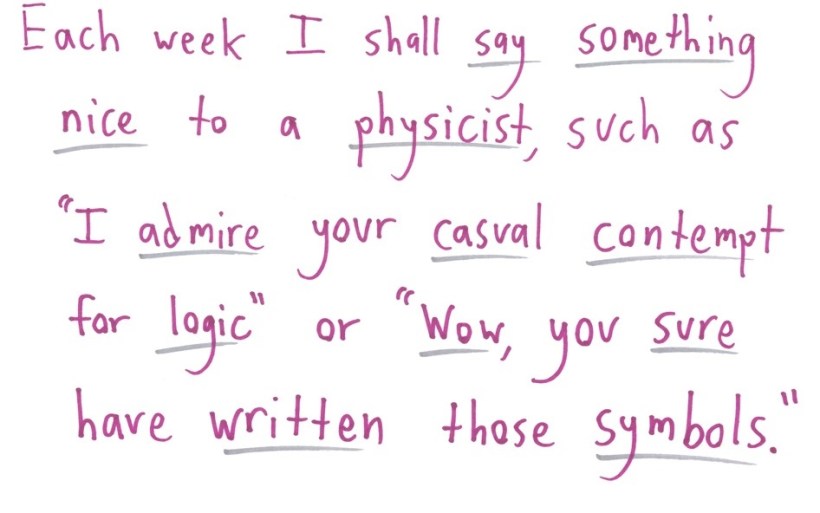 Each week I shall say something
nice to a physicist, such as
"I admire your casual contempt
for logic" or "Wow, you sure
have written those symbols."